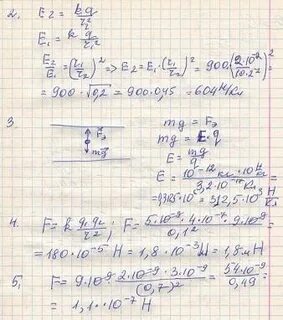 2. E₂ = kq/r₂²
E₁ = k q/r₁²
E₂/E₁ = (r₁/r₂)² => E₂ = E₁·(r₁/r₂)² = 900·(2·10⁻²/10·2⁻²)² =
= 900·√0,2 = 900·0,45 = 604 Н/Кл
3.
mg = Fэ
mg = E·q
E = mg/q
Fэ
mg
E = 10⁻¹² кг·10 Н/кг / 3,2·10⁻¹⁶ Кл =
= 312,5·10³ Н/Кл
4. F = k q₁q₂/r²; F = 5·10⁻⁹·4·10⁻⁷·9·10⁹/0,1² =
= 180·10⁻⁵ Н = 1,8·10⁻³ Н = 1,8 мН
5. F = 9·10⁹·2·10⁻⁹·3·10⁻⁹/(0,7)² = 54·10⁻⁹/0,49 =
= 1,1·10⁻⁷ Н